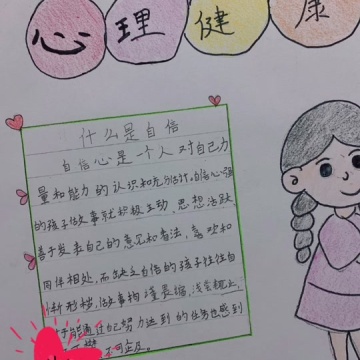 心理健康
什么是自信
自信心是一个人对自己力
量和能力的认识和充分估计。自信心强
的孩子做事就积极主动，思想活跃
善于发表自己的意见和看法，喜欢和
同伴相处，而缺乏自信的孩子往往自
形秽，做事拘谨畏缩，浅尝辄止，
对于能通过自己努力达到的任务也感到
不可企及。